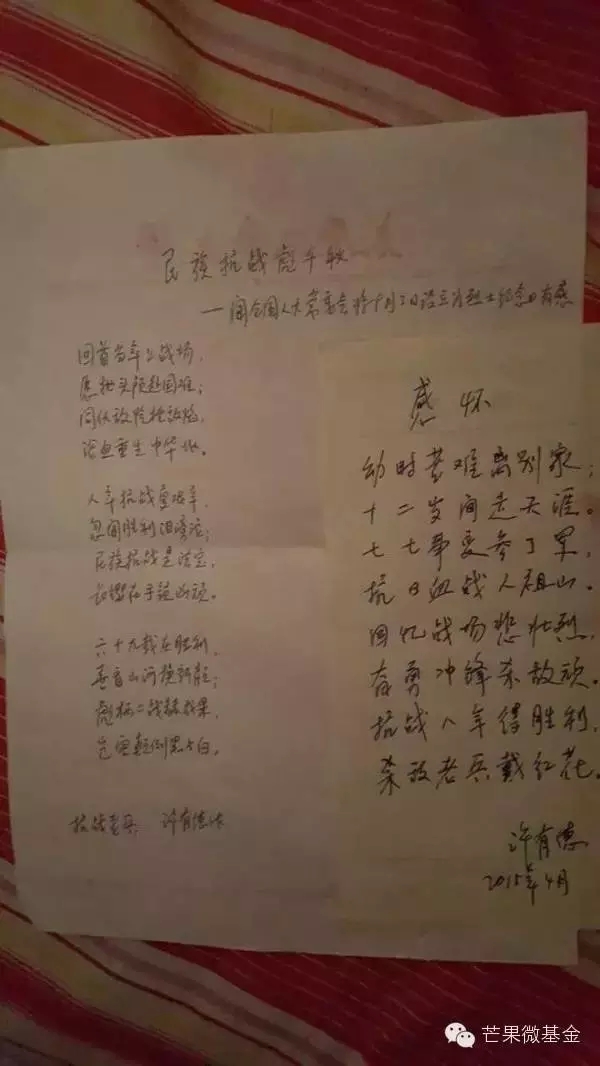 民族抗战彪千秋
——闻全国人大常委会将9月3日设立为烈士纪念日有感
回首当年上战场,
愿抛头颅赴国难;
同仇敌忾
浴血重生中华
八年抗战
忽闻胜利泪滂沱;
民族抗战是
长缨在手
六十九载庆胜利,
山河换新颜;
彪炳二战赫战果,
岂容颠倒黑与白。
抗战老兵 许有德
感怀
幼时苦难离别家;
十二岁间走天涯。
七七事变参了军,
抗日血战人祖山。
回忆战场悲壮烈,
奋勇冲锋杀敌顽。
抗战八年得胜利,
杀敌老兵戴红花。
许有德
2015年4月
芒果微基金